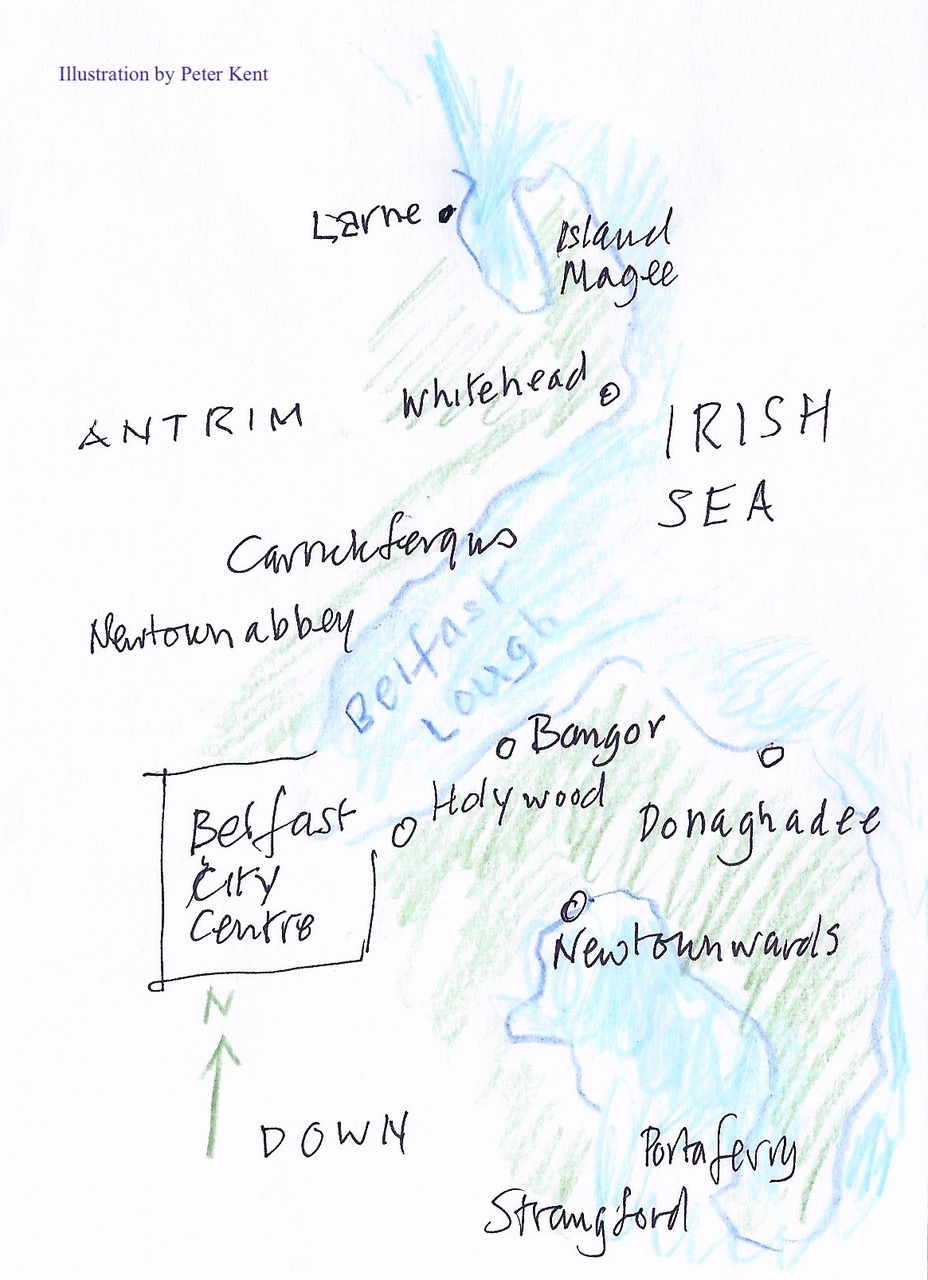 Illustration by Peter Kent
Larne
Island
Magee
Whitehead
ANTRIM
IRISH
SEA
Carrickfergus
Newtownabbey
Belfast
Lough
Bangor
Holywood
Donaghadee
Belfast
City
Centre
Newtownwards
N
DOWN
Portaferry
Strangford